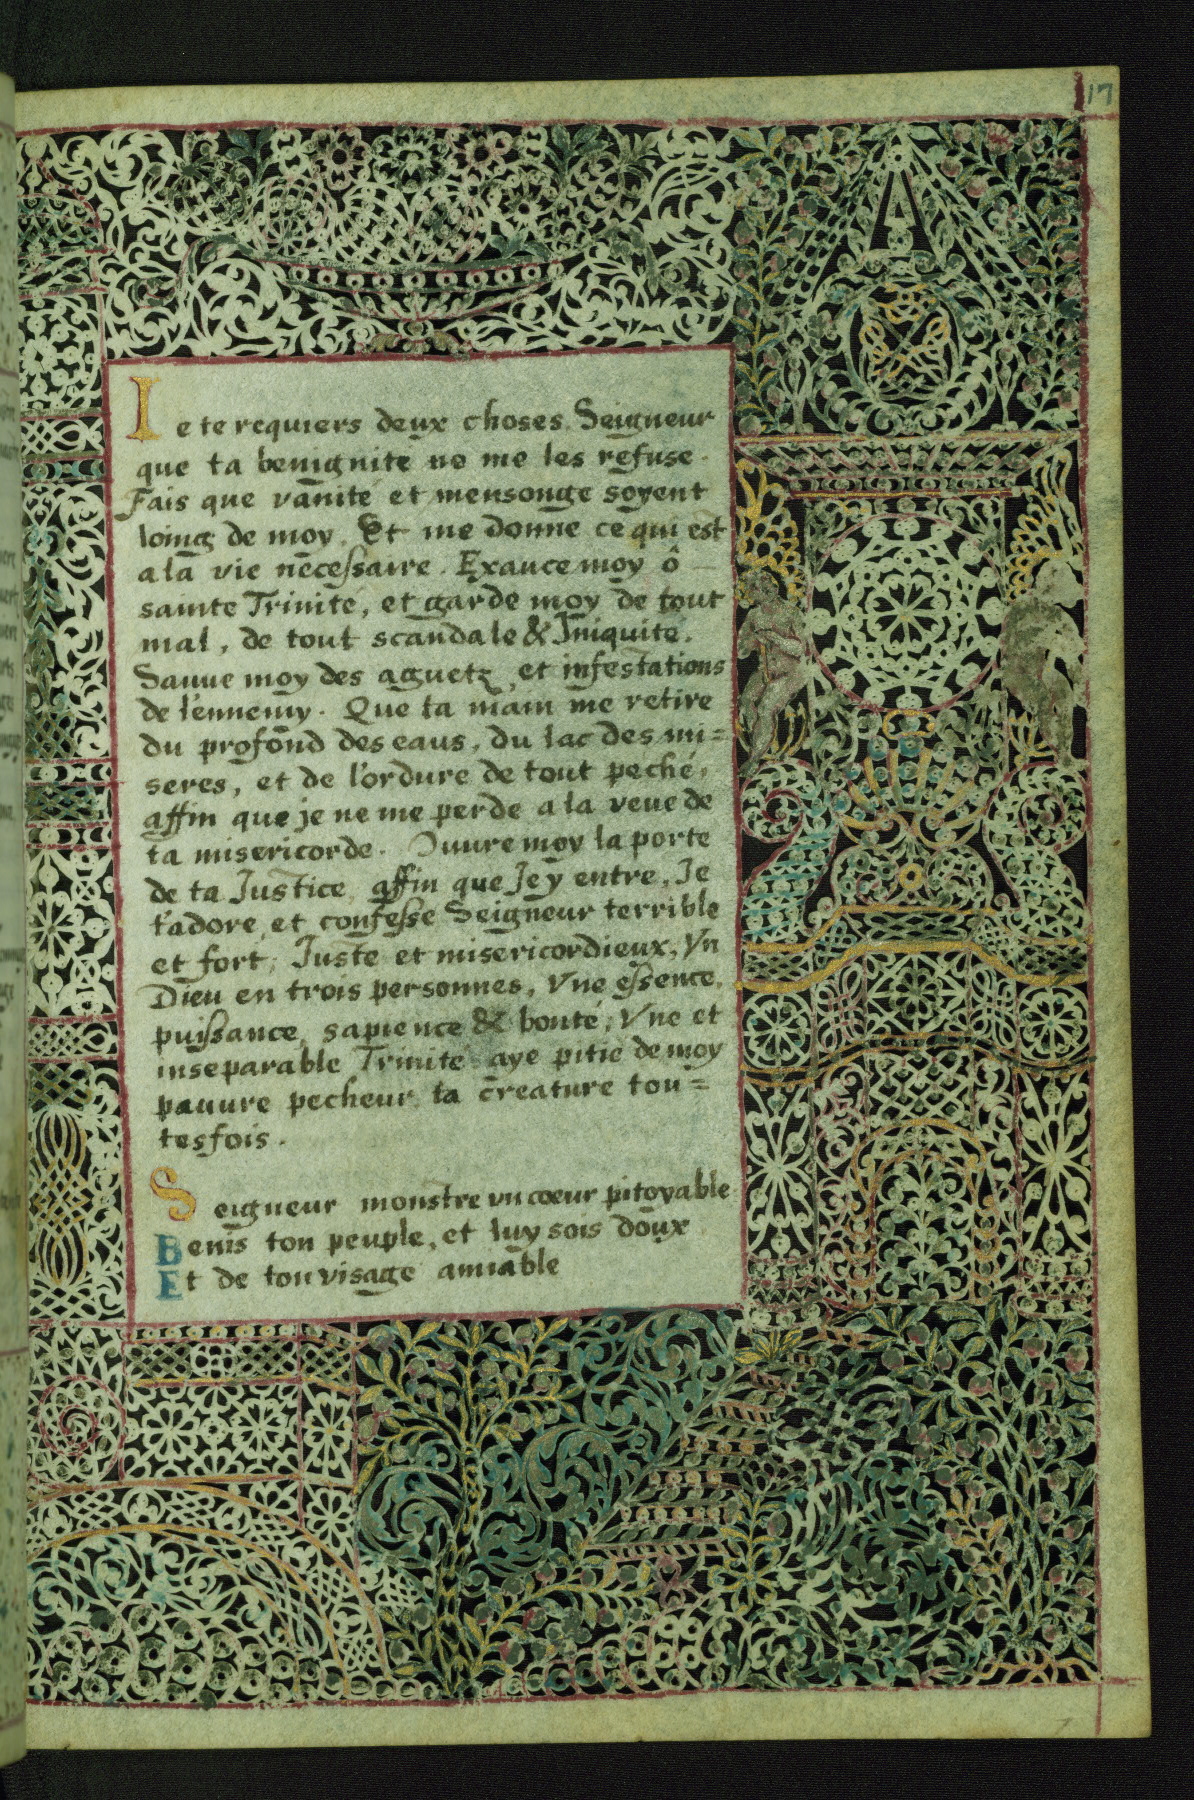 17
Ie te requiers deux choses Seigneur
que ta benignite ne me les refuse.
Fais que vanité et mensonge soyent
loing de moy. Et me donne ce qui est
a la vie necessaire. Exauce moy ô
sainte Trinité, et garde moy de tout
mal, de tout scandale & Iniquité.
Sauue moy des aguetz, et infestations
de l'ennemy. Que ta main me retire
du profond des eaus, du lac des mi=
seres, et de l'ordure de tout peché,
affin que je ne me perde a la veue de
ta misericorde. Ouure moy la porte
de ta Iustice, affin que Iey entre. Ie
t'adore, et confesse Seigneur terrible
et fort, Iuste et misericordieux, Vn
Dieu en trois personnes, Vne essence,
puissance, sapience & bonté, Vne et
inseparable Trinité aye pitie de moy
pauure pecheur, ta creature tou=
tesfois.
Seigneur monstre vn coeur pitoyable
Benis ton peuple, et luy sois doux
Et de ton visage amiable